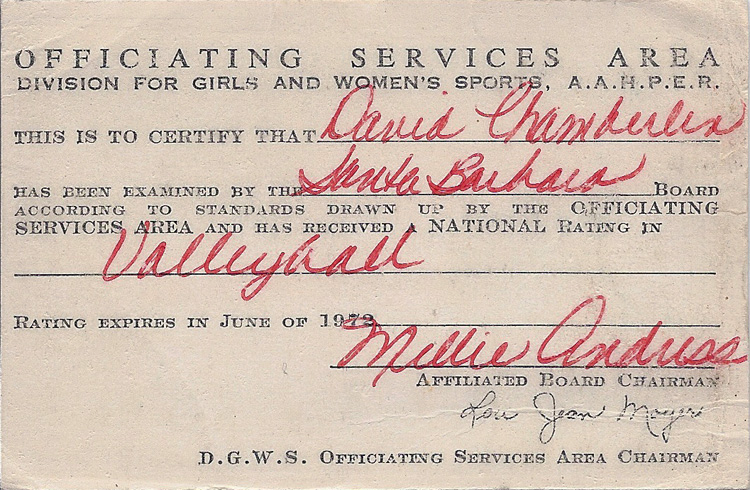 OFFICIATING SERVICES AREA
DIVISION FOR GIRLS AND WOMEN'S SPORTS, A.A.H.P.E.R.
THIS IS TO CERTIFY THAT David Chamberlin
HAS BEEN EXAMINED BY THE Santa Barbara BOARD
ACCORDING TO STANDARDS DRAWN UP BY THE OFFICIATING
SERVICES AREA AND HAS RECEIVED A NATIONAL RATING IN
Valleyball
RATING EXPIRES IN JUNE OF 1972
Millie Andress
AFFILIATED BOARD CHAIRMAN
Lou Jean Moyer
D.G.W.S. OFFICIATING SERVICES AREA CHAIRMAN